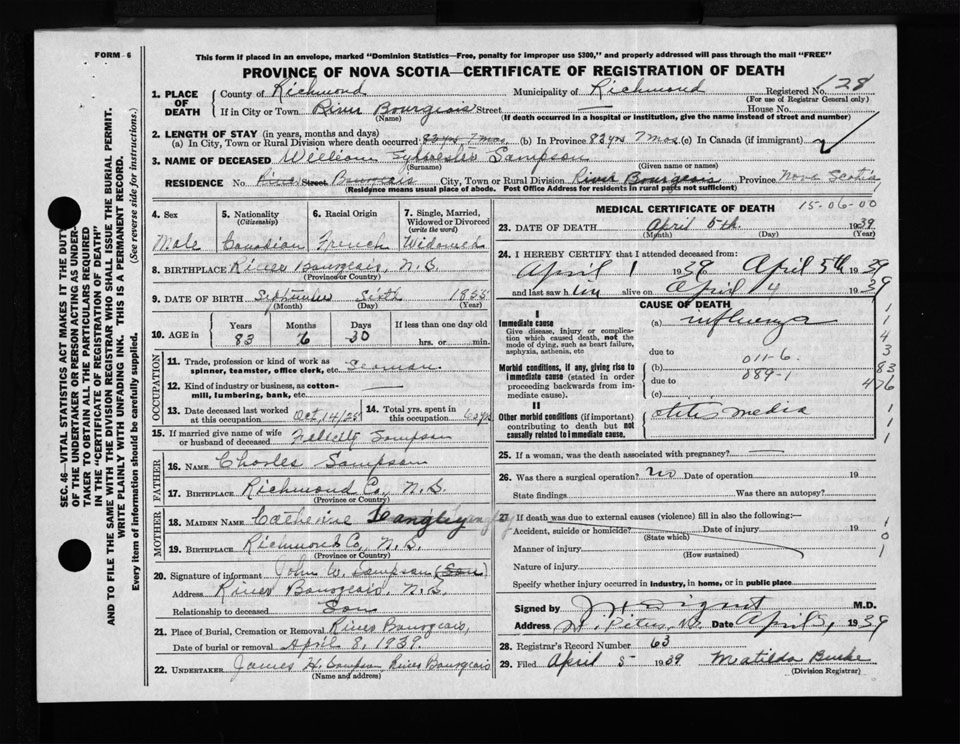 FORM 6
This form if placed in an envelope, marked "Dominion Statistics—Free, penalty for improper use $300," and properly addressed will pass through the mail "FREE"
PROVINCE OF NOVA SCOTIA—CERTIFICATE OF REGISTRATION OF DEATH
SEC. 46—VITAL STATISTICS ACT MAKES IT THE DUTY
OF THE UNDERTAKER OR PERSON ACTING AS UNDER-
TAKER TO OBTAIN ALL THE PARTICULARS REQUIRED
IN THE "CERTIFICATE OF REGISTRATION OF DEATH"
AND TO FILE THE SAME WITH THE DIVISION REGISTRAR WHO SHALL ISSUE THE BURIAL PERMIT.
WRITE PLAINLY WITH UNFADING INK. THIS IS A PERMANENT RECORD.
Every item of information should be carefully supplied. (See reverse side for instructions.)
1. PLACE OF DEATH
County of Richmond Municipality of Richmond Registered No. 128
(For use of Registrar General only)
If in City or Town River Bourgeois Street — House No.
(Name) (If death occurred in a hospital or institution, give the name instead of street and number)
2. LENGTH OF STAY (in years, months and days)
(a) In City, Town or Rural Division where death occurred 83 yrs 7 mos. (b) In Province 83 yrs 7 mos. (c) In Canada (if immigrant)
3. NAME OF DECEASED William Sylvester Sampson
(Surname) (Given name or names)
RESIDENCE No. River Street Bourgeois City, Town or Rural Division River Bourgeois Province Nova Scotia
(Residence means usual place of abode. Post Office Address for residents in rural parts not sufficient)
4. Sex
Male
5. Nationality
(Citizenship)
Canadian
6. Racial Origin
French
7. Single, Married,
Widowed or Divorced
(write the word)
Widowed
8. BIRTHPLACE River Bourgeois, N.S.
(Province or Country)
9. DATE OF BIRTH September Sixth 1855
(Month) (Day) (Year)
10. AGE in
Years Months Days If less than one day old
83 6 30 hrs. or min.
OCCUPATION
11. Trade, profession or kind of work as
spinner, teamster, office clerk, etc. Seaman
12. Kind of industry or business, as cotton-
mill, lumbering, bank, etc. —
13. Date deceased last worked
at this occupation Oct, 14/25
14. Total yrs. spent in
this occupation 60 yrs
15. If married give name of wife
or husband of deceased Felicity Sampson
FATHER
16. NAME Charles Sampson
17. BIRTHPLACE Richmond Co., N.S.
(Province or Country)
MOTHER
18. MAIDEN NAME Catherine Langley
19. BIRTHPLACE Richmond Co., N.S.
(Province or Country)
20. Signature of informant John W. Sampson (Son)
Address River Bourgeois, N.S.
Relationship to deceased Son
21. Place of Burial, Cremation or Removal River Bourgeois,
Date of burial or removal April 8, 1939.
22. UNDERTAKER James H. Sampson River Bourgeois
(Name and address)
MEDICAL CERTIFICATE OF DEATH
15-06-00
23. DATE OF DEATH April 5th. 1939
(Month) (Day) (Year)
24. I HEREBY CERTIFY that I attended deceased from:
April 1 1939 April 5th 1939
and last saw him alive on April 4 1939
CAUSE OF DEATH
I
Immediate cause
Give disease, injury or complica-
tion which caused death, not the
mode of dying, such as heart failure,
asphyxia, asthenia, etc
(a) Influenza
due to
Morbid conditions, if any, giving rise to
immediate cause (stated in order
proceeding backwards from im-
mediate cause).
(b) 011-6.
due to 089-1
(c)
II
Other morbid conditions (if important)
contributing to death but not
causally related to immediate cause.
Otitis media
1
1
4
3
83
476
1
1
1
25. If a woman, was the death associated with pregnancy? —
26. Was there a surgical operation? no Date of operation 19
State findings Was there an autopsy?
27. If death was due to external causes (violence) fill in also the following:—
Accident, suicide or homicide? Date of injury 19
(State which)
Manner of injury
(How sustained)
Nature of injury
Specify whether injury occurred in industry, in home, or in public place
1
0
1
Signed by M.D.
Address St. Peters, N.S. Date April 5, 1939
28. Registrar's Record Number 63
29. Filed April 5 1939 Matilda Burke
(Division Registrar)